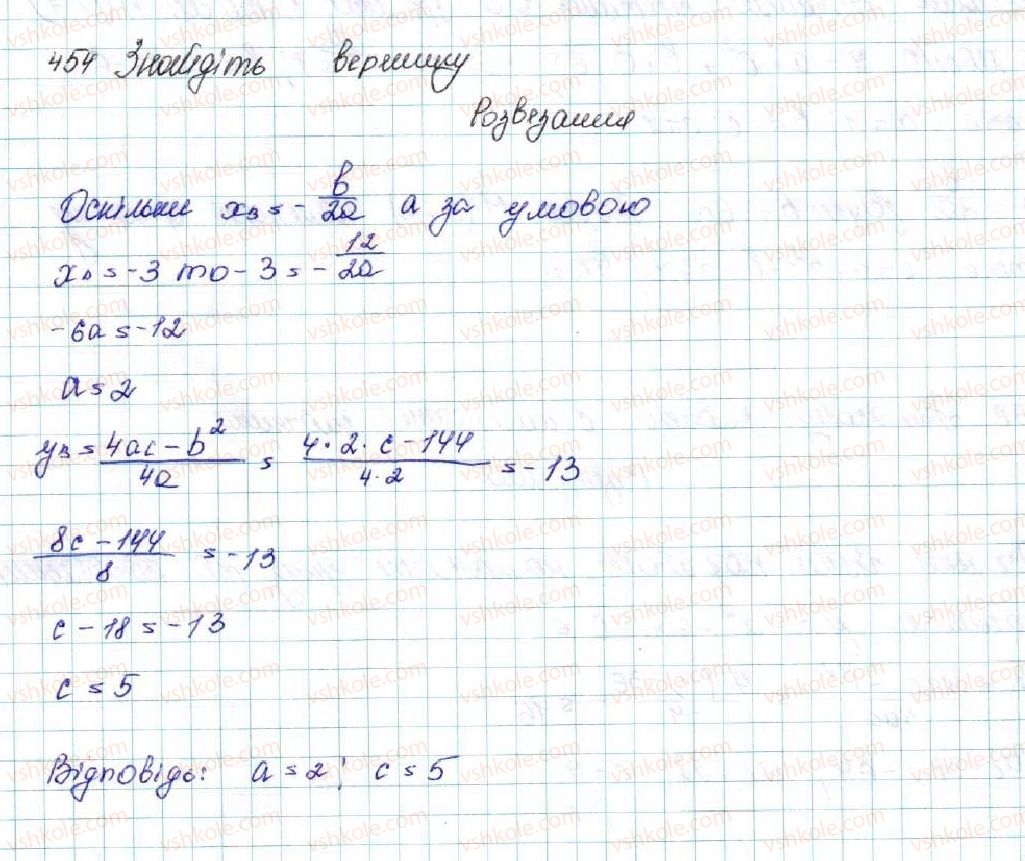 454 Знайдіть вершину
Розвязання
Оскільки xв = - b/2a а за умовою
xв = -3 то -3 = - 12/2a
-6a = -12
a = 2
yв = (4ac - b²)/4a = (4·2·c - 144)/(4·2) = -13
(8c - 144)/8 = -13
c - 18 = -13
c = 5
Відповідь: a = 2; c = 5